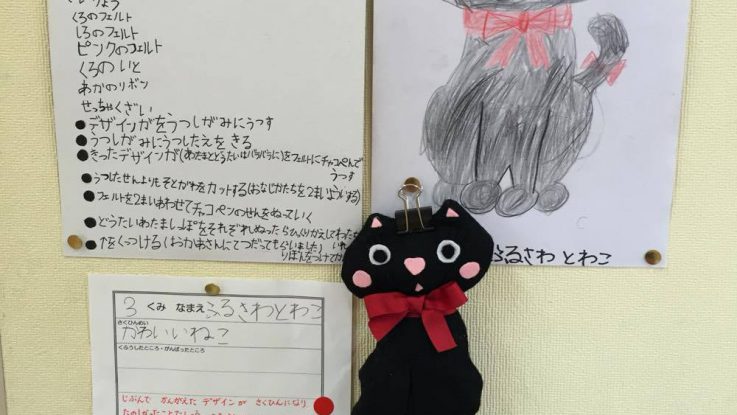 くろのフェルト
しろのフェルト
ピンクのフェルト
くろのいと
あかのリボン
せっちゃくざい
●デザインがをうつしがみにうつす
●うつしがみにうつしたえをきる
●きったデザインが(あたまとどうたいはバラバラに)をフェルトにチャコペンで
うつす
●うつしたせんよりもそとがわをカットする(おなじかたちを2まいようい する)
●フェルトを2まいあわせてチャコペンのせんをぬっていく
●どうたい わた しっぽをそれぞれぬったらひっくりかえしてわたを
●をくっつける(はうかあさんにてつだってもらいました)
りぼんをつけて
ふるさわ とわこ
3 くみ なまえ ふるさわとわこ
さくひんめい
かわいいねこ
くふうしたところ・がんばったところ
じぶんで かんがえた デザインが さくひんになり